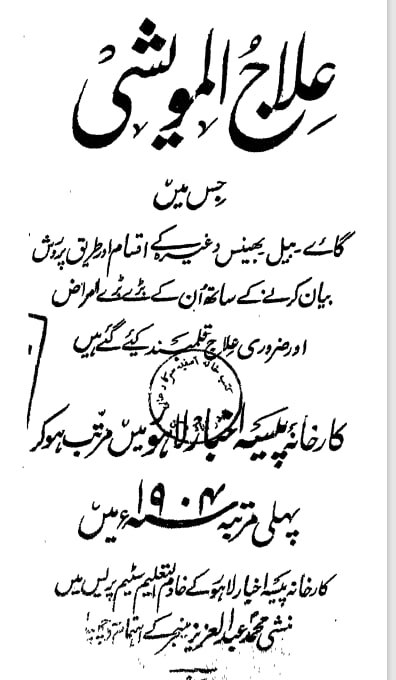 علاج المویشی
جس میں
گائے ۔ بیل ۔ بھینس وغیرہ کے اقسام اور طریق پرورش
بیان کرنے کے ساتھ اُن کے بڑے بڑے امراض
اور ضروری علاج قلمبند کیئے گئے ہیں
کتب خانہ آصفیہ سرکار
کارخانۂ پیسیہ اخبار لاہور میں مرتب ہو کر
پہلی مرتبہ ۱۹۰۴ء میں
کارخانہ پیسہ اخبار لاہور کے خادم التعلیم سٹیم پریس میں
منشی محمد عبدالعزیز منیجر کے اہتمام سے چھپا